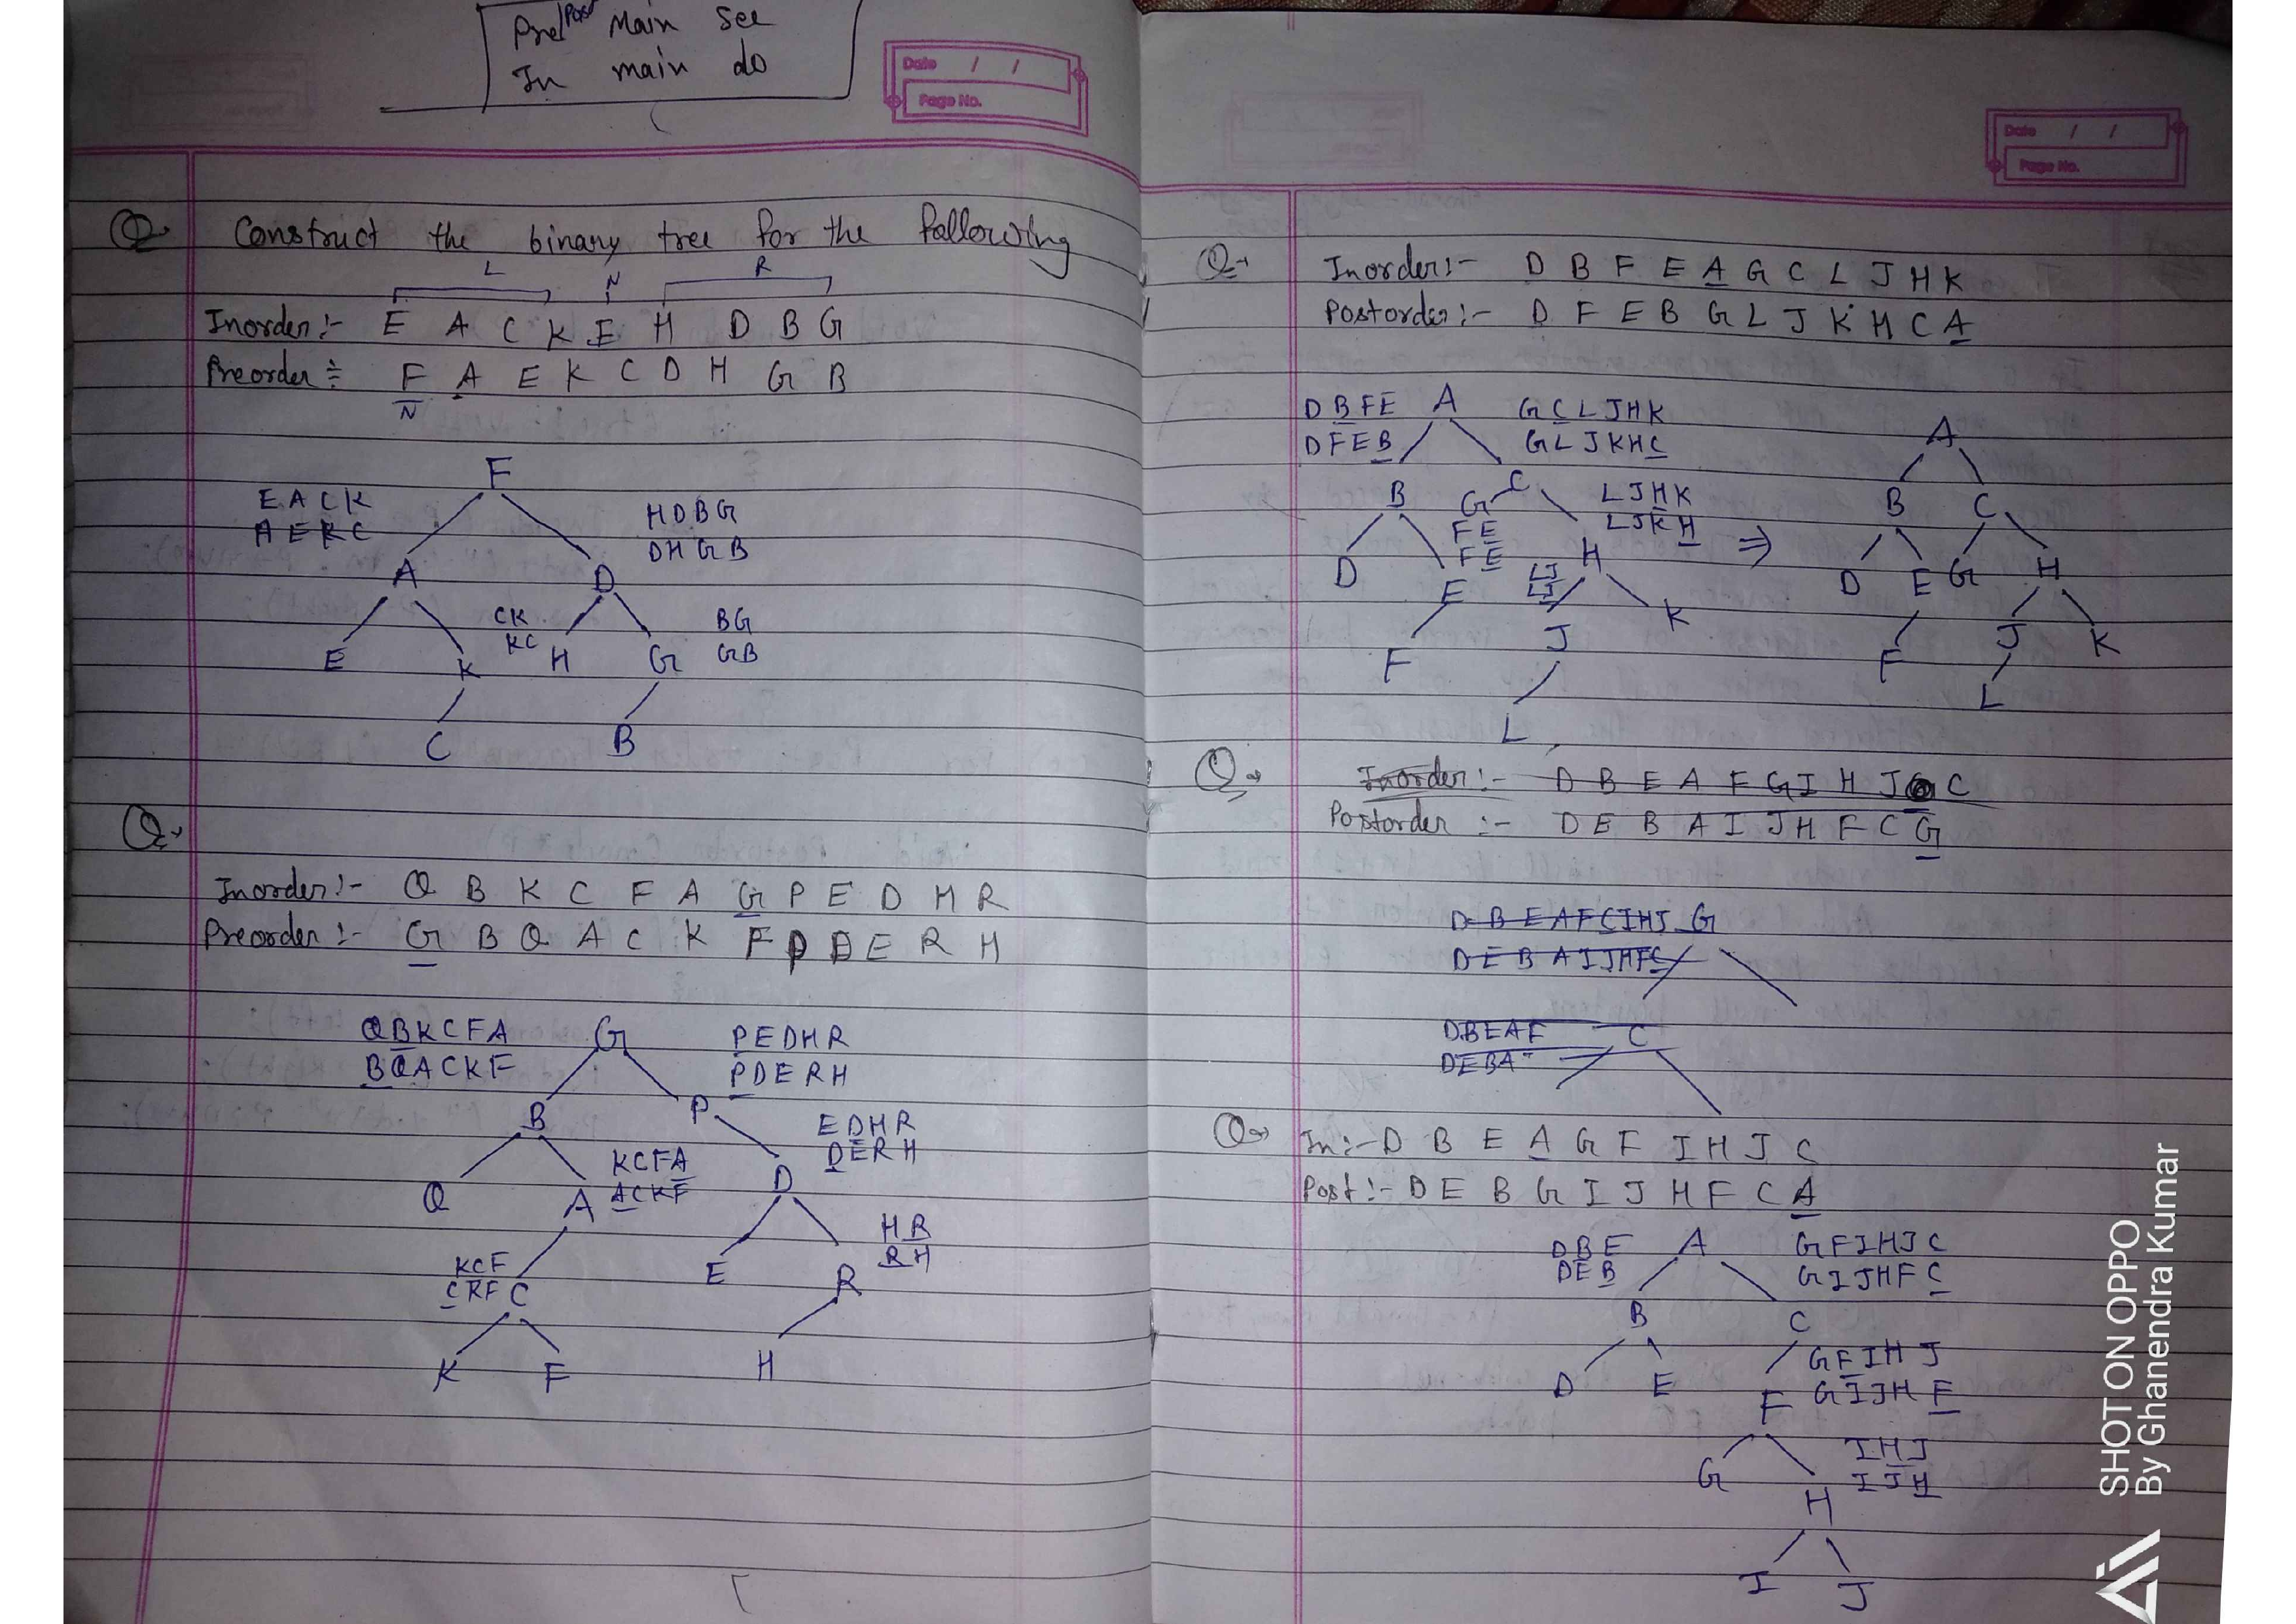 Pre/Post Main See
In main do
Date / /
Page No.
Q Construct the binary tree for the following
L N R
Inorder:- E A C K F H D B G
Preorder:- F A E K C D H G B
N
F
E A C K
A E K C
H D B G
D H G B
A D
CK
KC
BG
GB
E K H G
C B
Q→
Inorder:- Q B K C F A G P E D H R
Preorder:- G B Q A C K F P D E R H
Q B K C F A G P E D H R
B Q A C K F P D E R H
B P
E D H R
D E R H
K C F A
A C K F
Q A D
H R
R H
K C F
C K F
C E R
K F H
Date / /
Page No.
Q→ Inorder:- D B F E A G C L J H K
Postorder:- D F E B G L J K H C A
D B F E A G C L J H K
D F E B G L J K H C
B G C
L J H K
L J K H
F E
F E
D E H
L J
L J
F J K
L
⇒
A
B C
D E G H
F J K
L
Q→ Inorder:- D B E A F G I H J C
Postorder:- D E B A I J H F C G
D B E A F C I H J G
D E B A I J H F C
D B E A F C
D E B A
Q→ In:- D B E A G F I H J C
Post:- D E B G I J H F C A
D B E A G F I H J C
D E B G I J H F C
B C
G F I H J
D E F G I J H F
I H J
G I J H
H
I J
SHOT ON OPPO
By Ghanendra Kumar